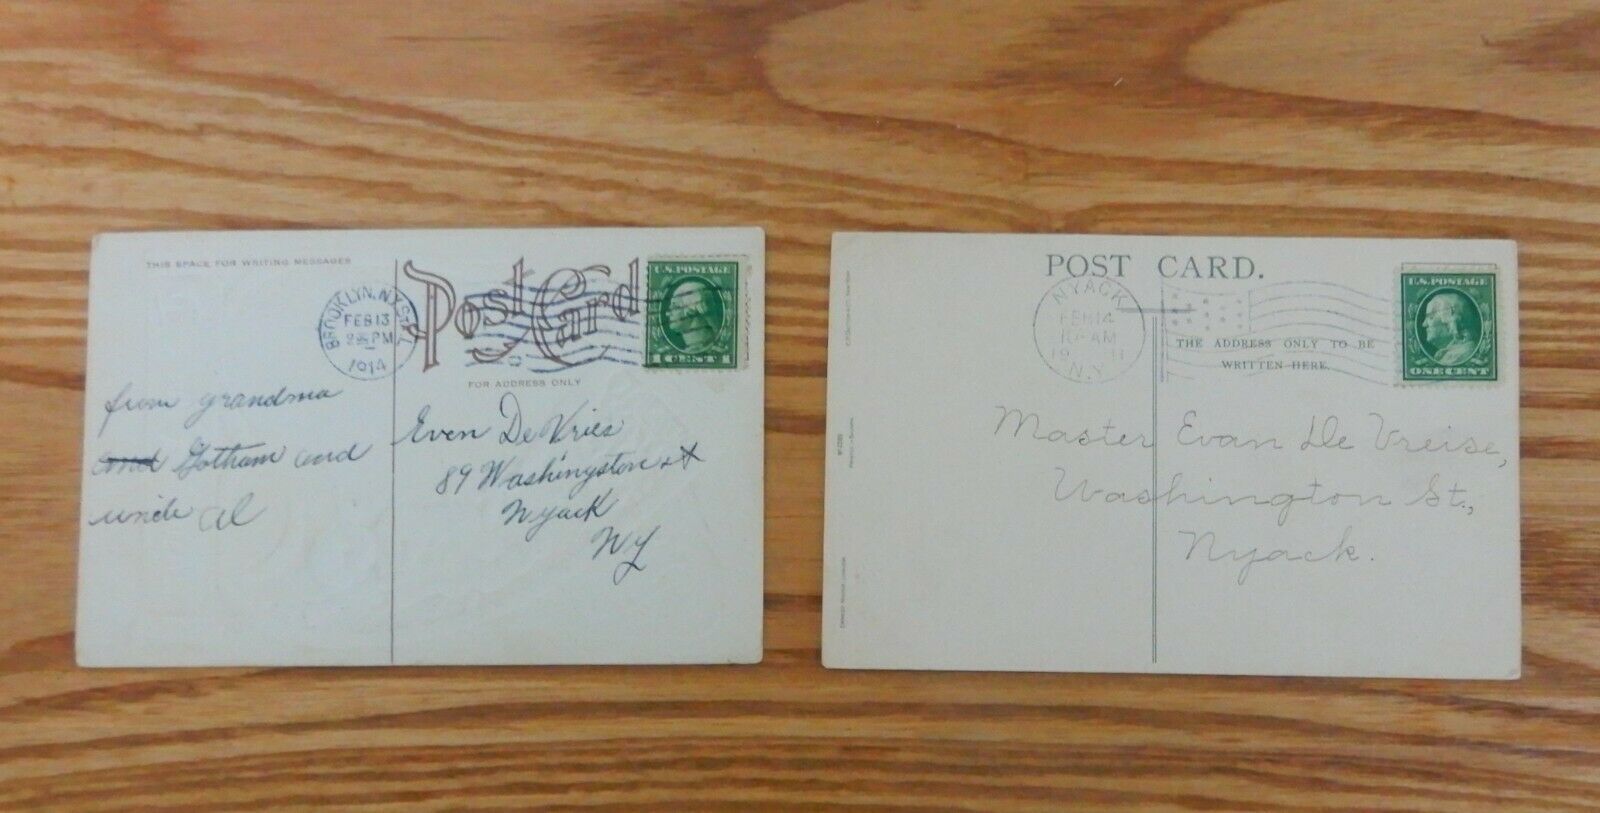 THIS SPACE FOR WRITING MESSAGES
Post Card
BROOKLYN, N.Y. STA. L
FEB 13
2 PM
1914
U.S. POSTAGE
1 CENT 1
FOR ADDRESS ONLY
from grandma
and Gotham and
uncle Al
Even De Vries
89 Washingston st
Nyack
NY
POST CARD.
NYACK
FEB 14
AM
1911
N.Y.
U.S. POSTAGE
ONE CENT
THE ADDRESS ONLY TO BE
WRITTEN HERE.
Master Evan De Vreise,
Washington St.,
Nyack.